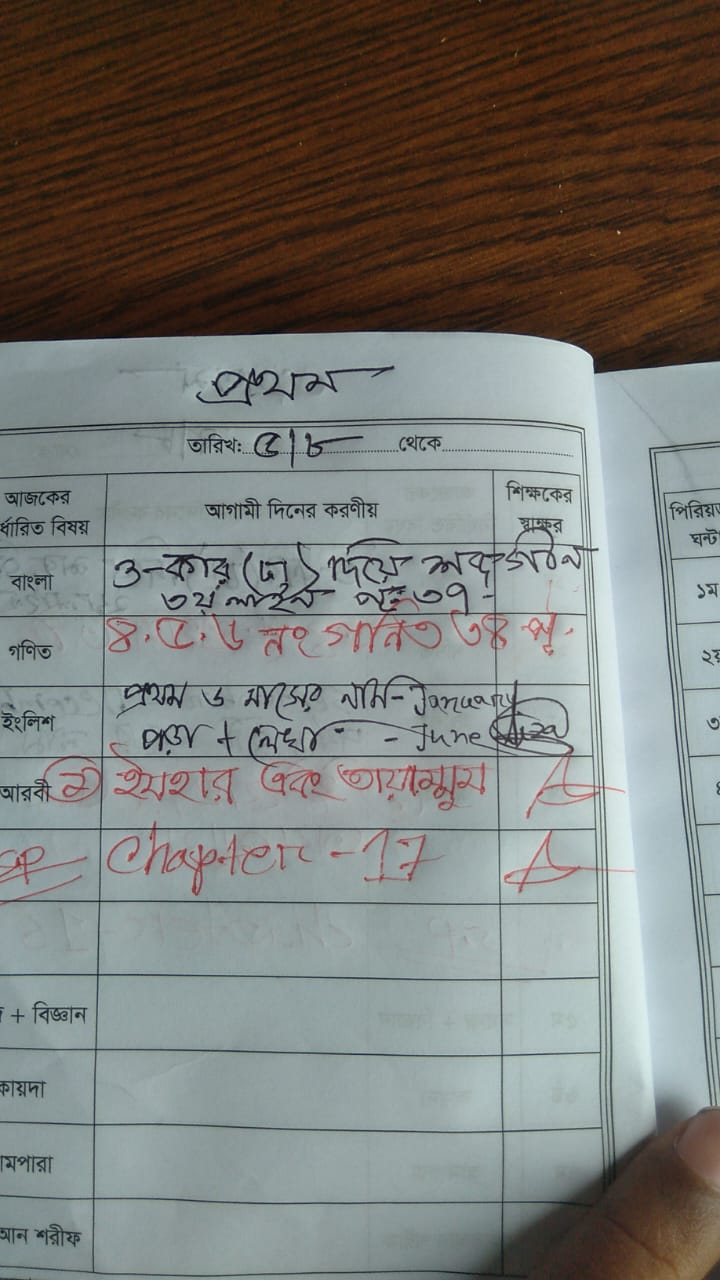 প্রথম
তারিখ: ৫/৮ থেকে
আজকের
র্ধারিত বিষয়
আগামী দিনের করণীয়
শিক্ষকের
স্বাক্ষর
বাংলা ও-কার (ো) দিয়ে শব্দ গঠন
৩য় লাইন পৃঃ ৩৭
গণিত ৪.৫.৬ নং গনিত ৩৪ পৃ.
ইংলিশ প্রথম ৬ মাসের নাম-January
পড়া + লেখা - June
আরবী ইযহার এবং তায়াম্মুম
Chapter-17
+ বিজ্ঞান
কায়দা
মপারা
আন শরীফ
পিরিয়
ঘন্ট
১ম
২য়